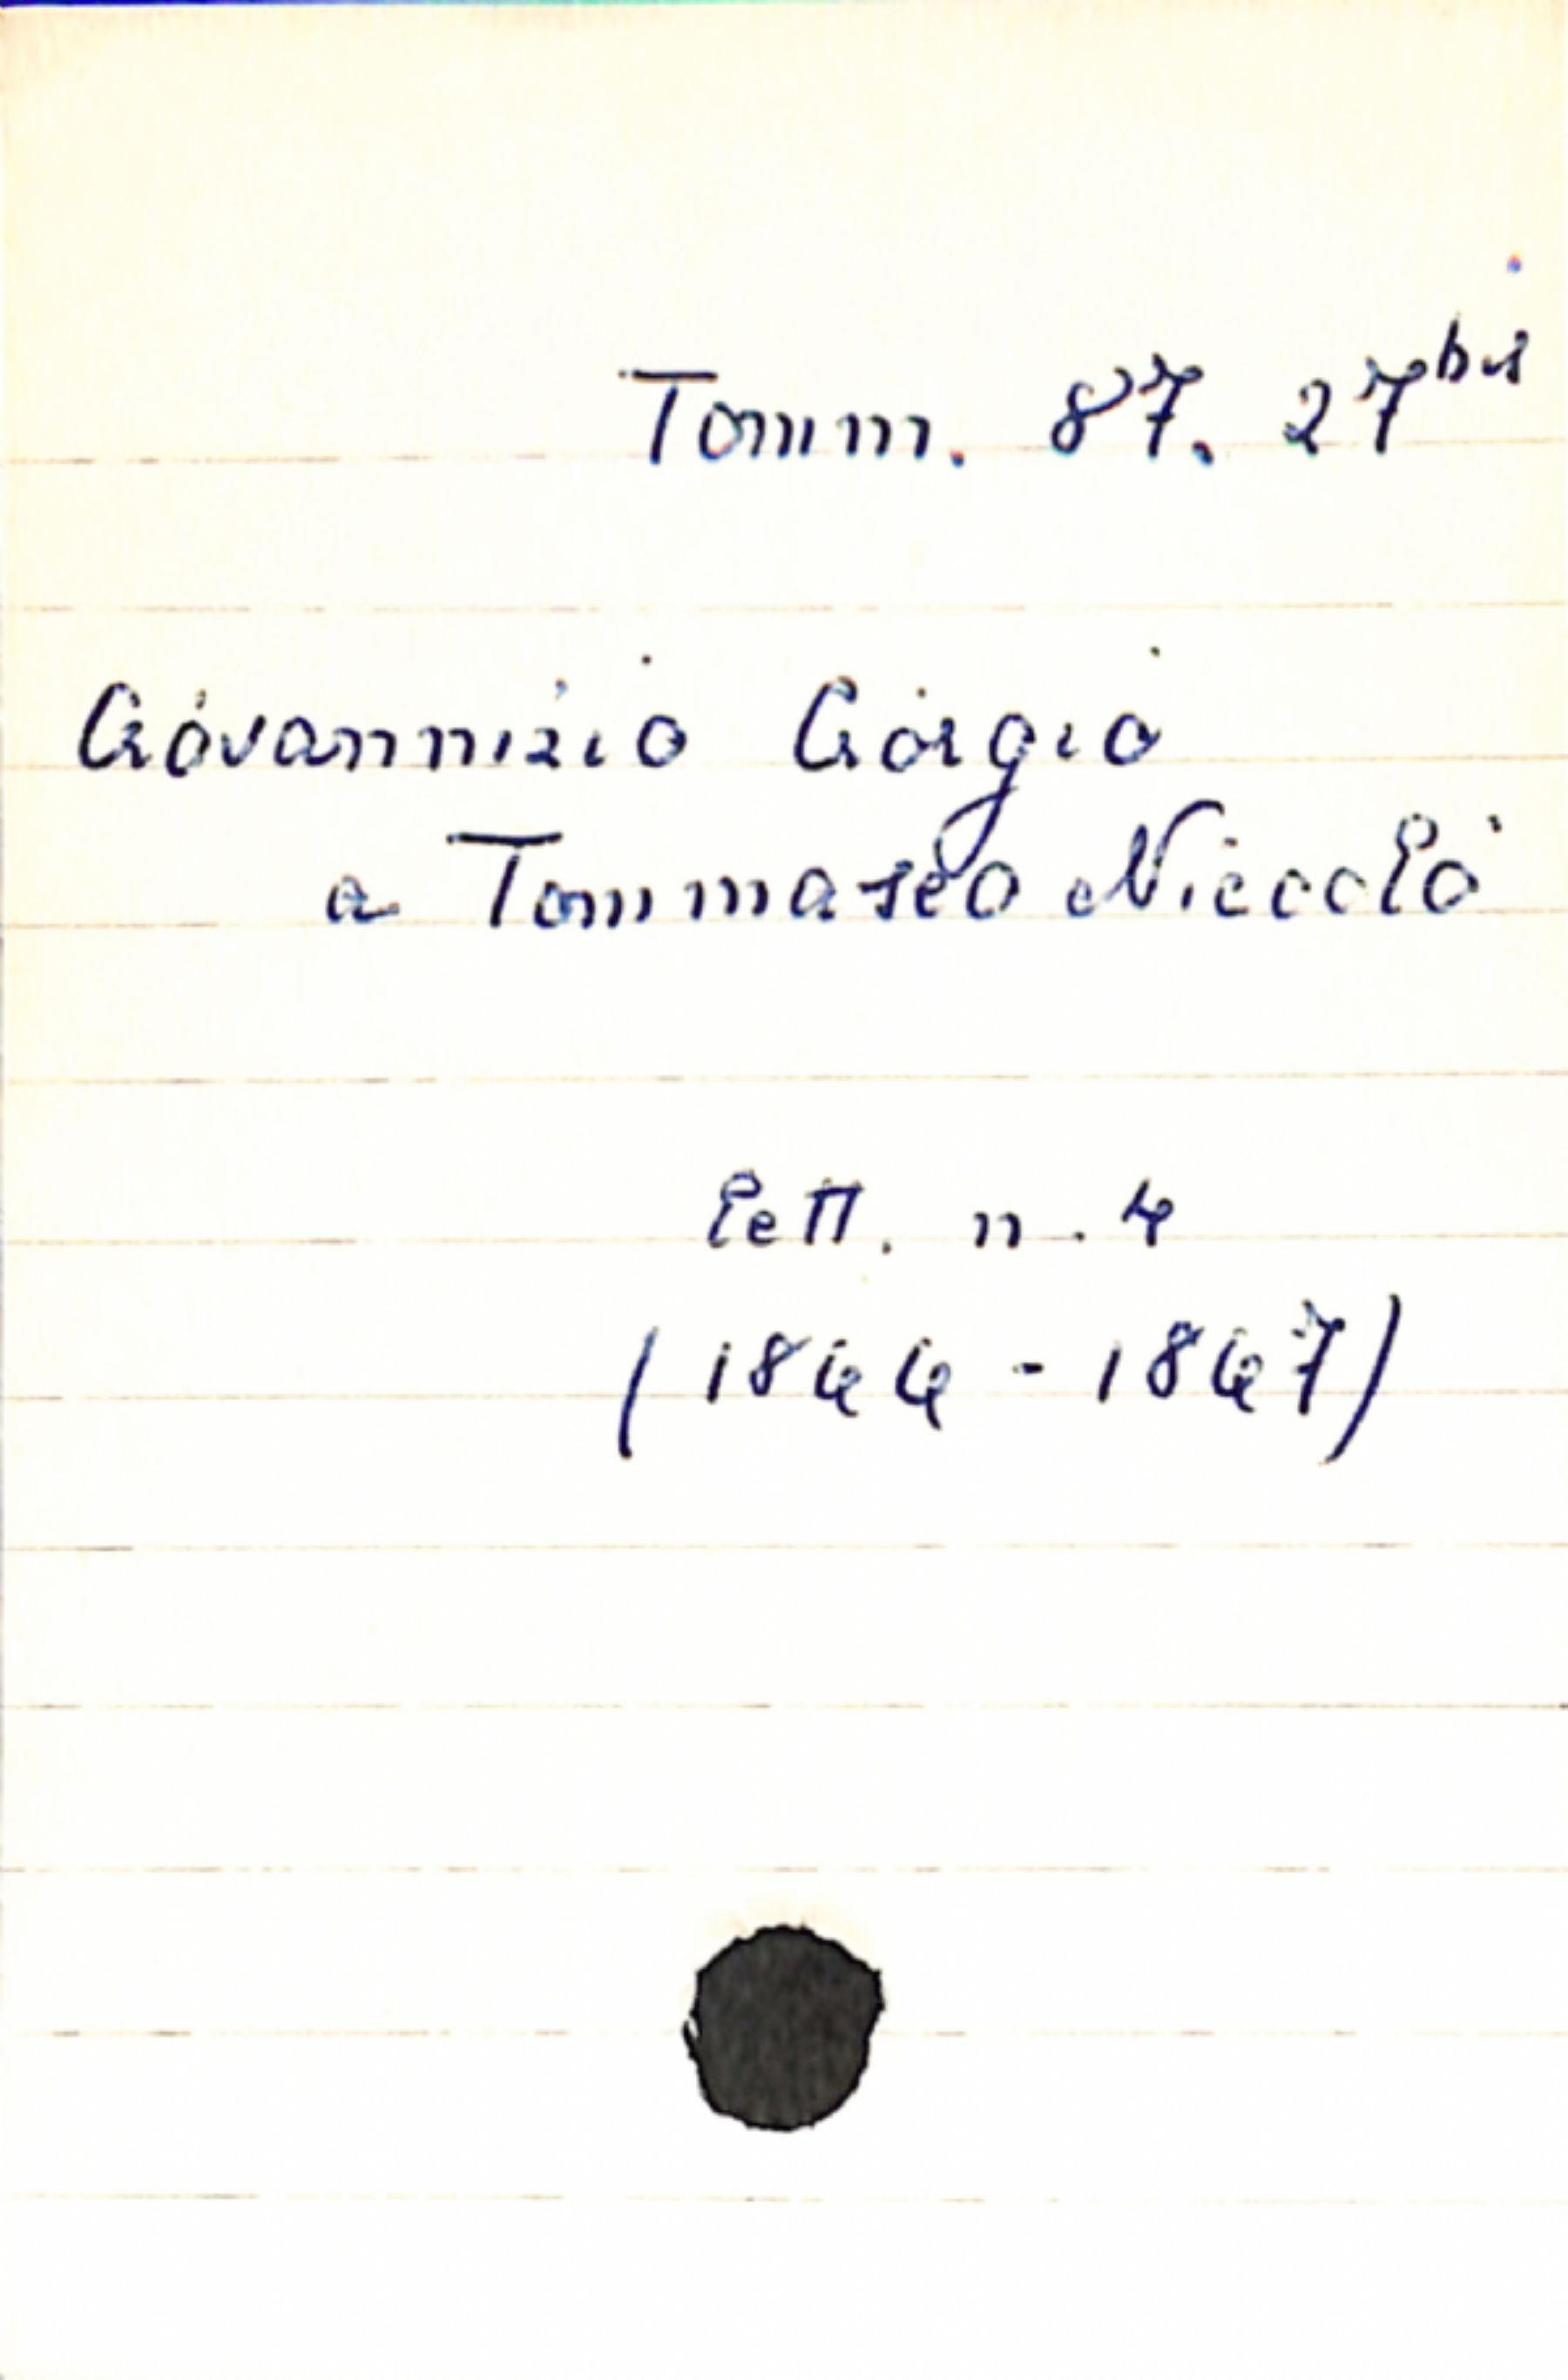 Tomm. 87. 27 bis
Giovannizio Giorgio
a Tommaseo Niccolò
lett. n. 4
(1844 - 1847)